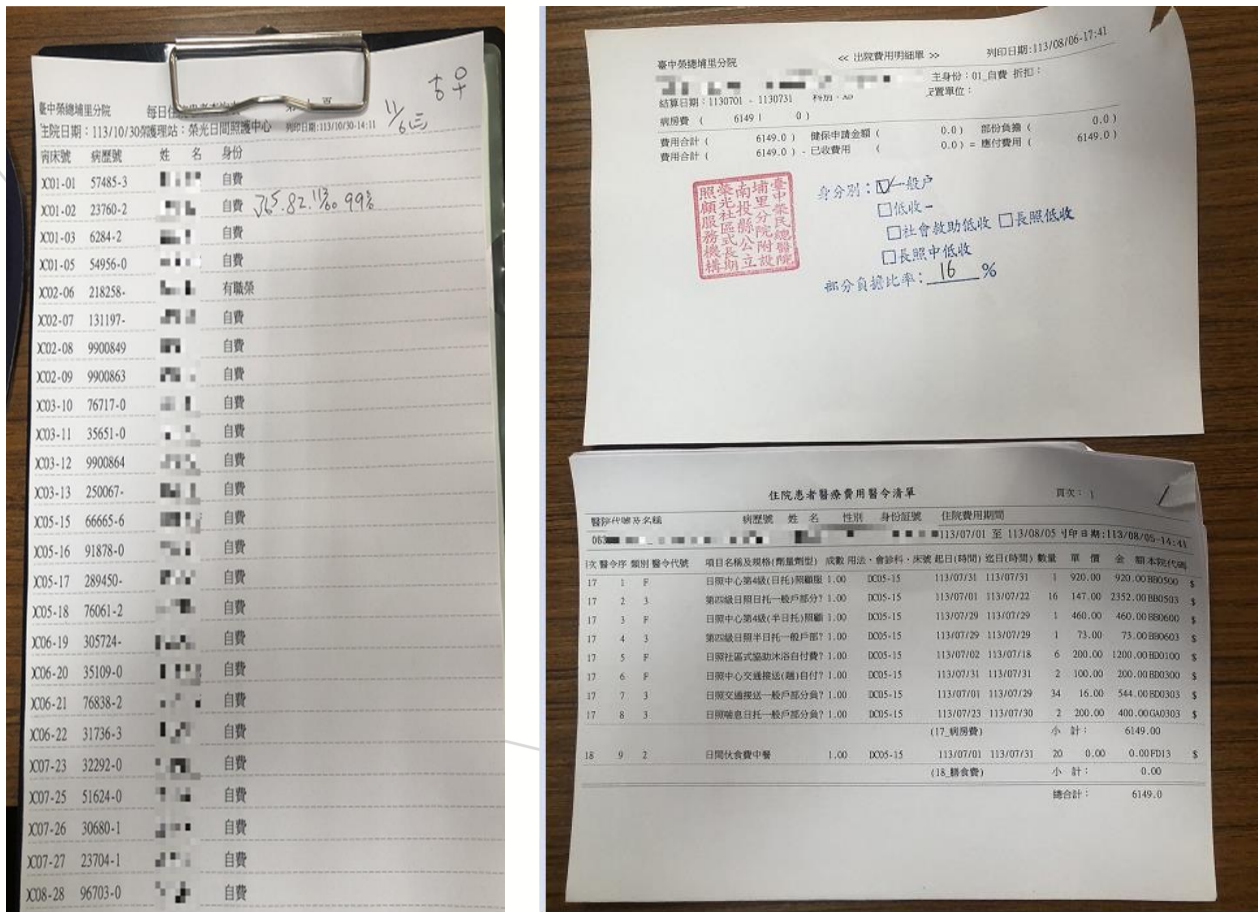 臺中榮總埔里分院
住院日期：113/10/30 護理站：榮光日間照護中心 列印日期:113/10/30-14:11
11/6(三)
病床號 病歷號 姓 名 身份
01-01 57485-3 自費
01-02 23760-2 自費
01-03 6284-2 自費
01-05 54956-0 自費
02-06 218258- 有職榮
02-07 131197- 自費
02-08 9900849 自費
02-09 9900863 自費
03-10 76717-0 自費
03-11 35651-0 自費
03-12 9900864 自費
03-13 250067- 自費
05-15 66665-6 自費
05-16 91878-0 自費
05-17 289450- 自費
05-18 76061-2 自費
06-19 305724- 自費
06-20 35109-0 自費
06-21 76838-2 自費
06-22 31736-3 自費
07-23 32292-0 自費
07-25 51624-0 自費
07-26 30680-1 自費
07-27 23704-1 自費
08-28 96703-0 自費
臺中榮總埔里分院 << 出院費用明細單 >> 列印日期:113/08/06-17:41
主身份：01_自費 折扣：
結算日期：1130701 - 1130731 科別：
病房費 ( 6149 | 0)
費用合計 ( 6149.0 ) 健保申請金額 ( 0.0 ) 部份負擔 ( 0.0 )
費用合計 ( 6149.0 ) - 已收費用 ( 0.0 ) = 應付費用 ( 6149.0 )
臺中榮民總醫院
埔里分院附設
南投縣公立
榮光社區式長期
照顧服務機構
身分別：☑一般戶
☐低收-
☐社會救助低收 ☐長照低收
☐長照中低收
部分負擔比率：16%
住院患者醫療費用醫令清單 頁次： 1
醫院代號及名稱 病歷號 姓 名 性別 身份証號 住院費用期間
063 113/07/01 至 113/08/05 列印日期:113/08/05-14:41
醫令序 類別 醫令代號 項目名稱及規格(劑量劑型) 成數 用法、會診科、床號 起日(時間) 迄日(時間) 數量 單 價 金 額 本院代碼
17 1 F 日照中心第4級(日托)照顧服 1.00 DC05-15 113/07/31 113/07/31 1 920.00 920.00 BB0500 $
17 2 3 第四級日照日托一般戶部分? 1.00 DC05-15 113/07/01 113/07/22 16 147.00 2352.00 BB0503 $
17 3 F 日照中心第4級(半日托)照顧 1.00 DC05-15 113/07/29 113/07/29 1 460.00 460.00 BB0600 $
17 4 3 第四級日照半日托一般戶部? 1.00 DC05-15 113/07/29 113/07/29 1 73.00 73.00 BB0603 $
17 5 F 日照社區式協助沐浴自付費? 1.00 DC05-15 113/07/02 113/07/18 6 200.00 1200.00 BD0100 $
17 6 F 日照中心交通接送(趟)自付? 1.00 DC05-15 113/07/31 113/07/31 2 100.00 200.00 BD0300 $
17 7 3 日照交通接送一般戶部分負? 1.00 DC05-15 113/07/01 113/07/29 34 16.00 544.00 BD0303 $
17 8 3 日照喘息日托一般戶部分負? 1.00 DC05-15 113/07/23 113/07/30 2 200.00 400.00 GA0303 $
(17_病房費) 小 計： 6149.00
18 9 2 日間伙食費中餐 1.00 DC05-15 113/07/01 113/07/31 20 0.00 0.00 FD13 $
(18_膳食費) 小 計： 0.00
總合計： 6149.0